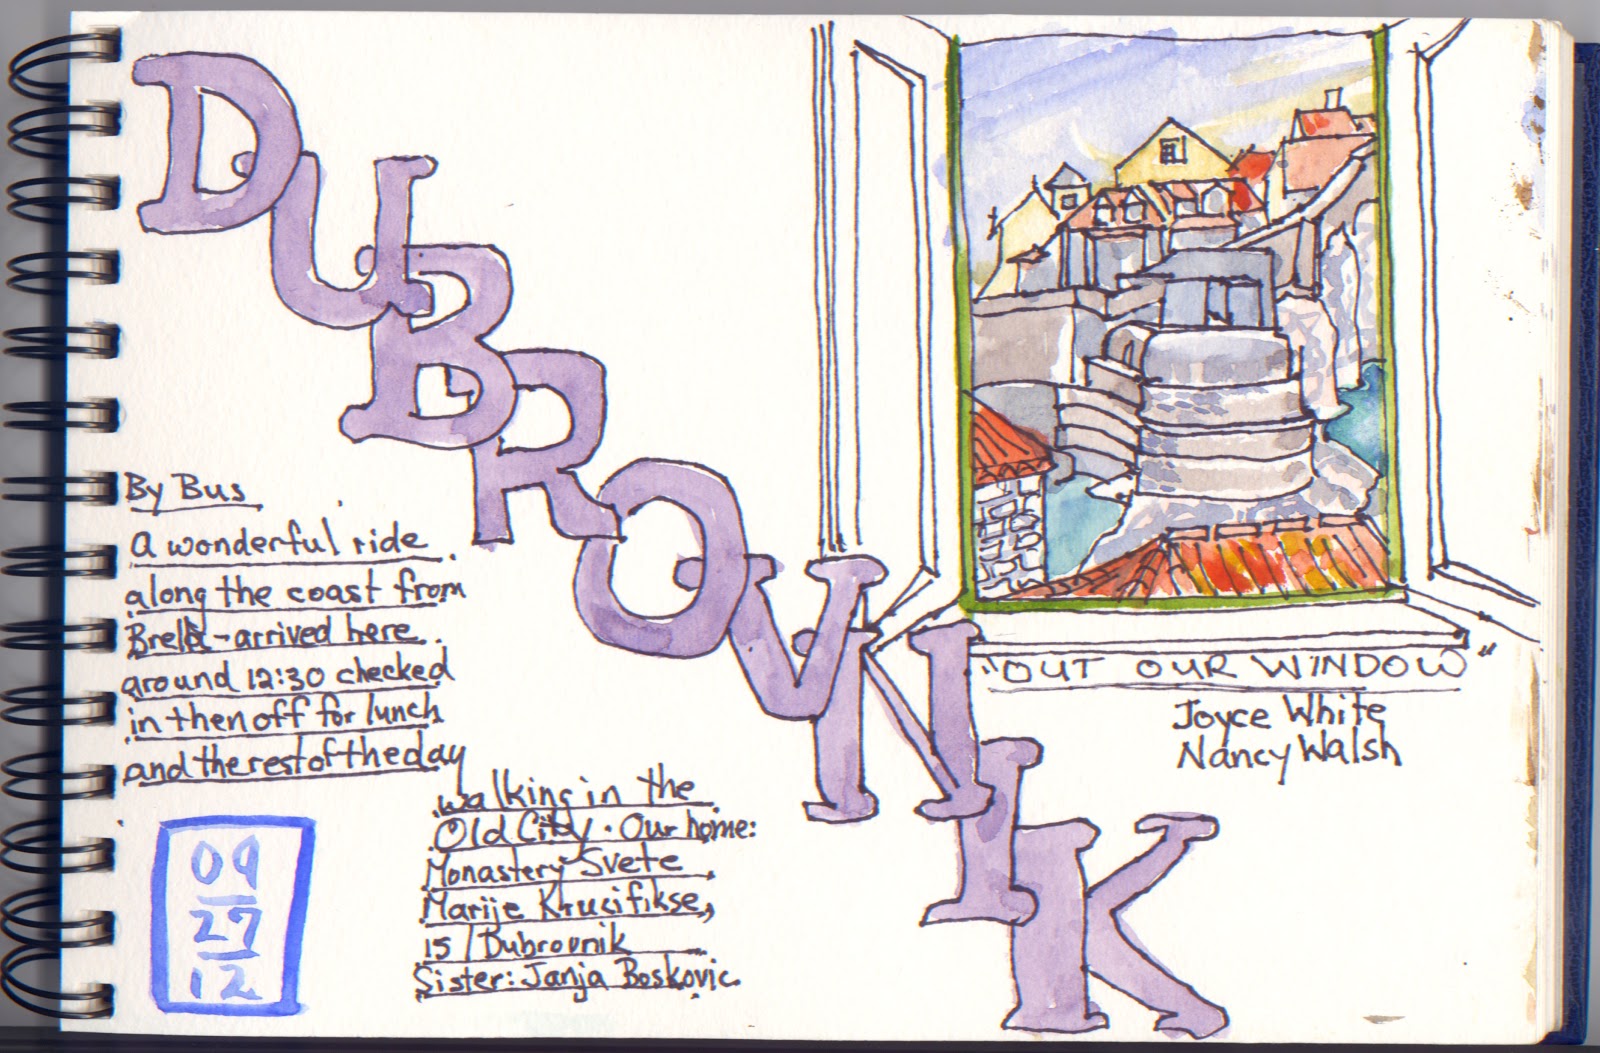 DUBROVNIK
By Bus
A wonderful ride
along the coast from
Brela - arrived here
around 12:30 checked
in then off for lunch
and the rest of the day
walking in the
Old City · Our home:
Monastery Svete
Marije Krucifikse,
15 / Dubrovnik
Sister: Janja Boskovic
09
27
12
"OUT OUR WINDOW"
Joyce White
Nancy Walsh